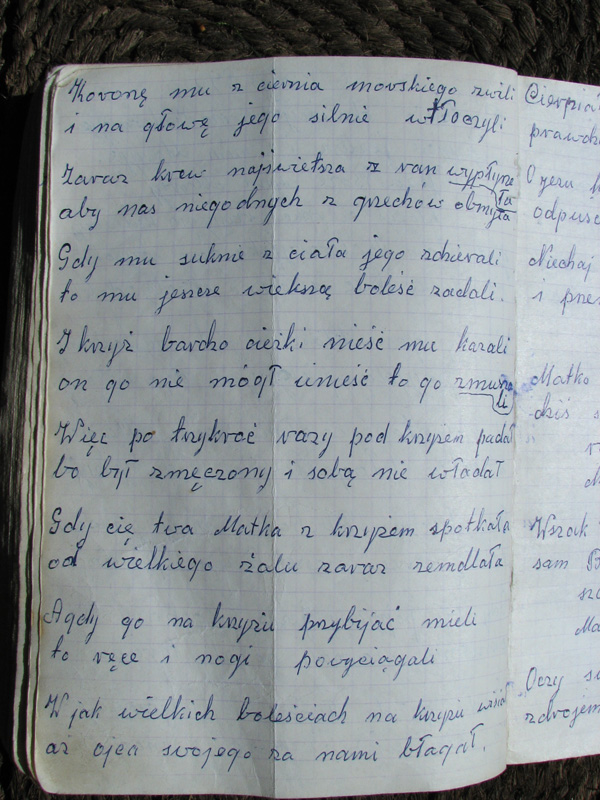 Koronę mu z ciernia morskiego zwili
i na głowę jego silnie wtłoczyli
Zaraz krew najświetsza z ran wypłynęła
aby nas niegodnych z grzechów obmyła
Gdy mu suknie z ciała jego zdzierali
to mu jeszcze wiekszą boleść zadali.
I krzyż bardzo cieżki nieść mu kazali
on go nie mógł unieść to go zmuszali
Więc po trzykroć razy pod krzyżem padał
bo był zmęczony i sobą nie władał
Gdy cię twa Matka z krzyżem spotkała
od wielkiego żalu zaraz zemdlała
A gdy go na krzyżu przybijać mieli
to ręce i nogi powyciągali
W jak wielkich boleściach na krzyżu wisiał
aż ojca swojego za nami błagał.
O jezu
Niechaj
i
Matko
dziś
Wszak
sam
Oczy